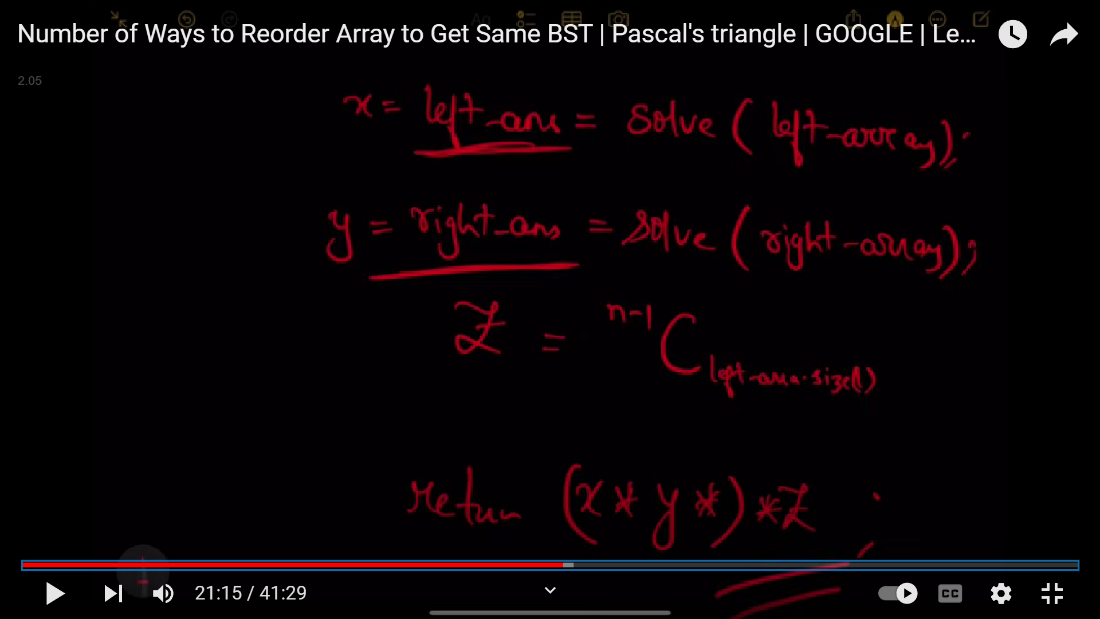 Number of Ways to Reorder Array to Get Same BST | Pascal's triangle | GOOGLE | Le...
2.05
x = left_ans = solve ( left-array);
y = right_ans = solve ( right-array);
Z = n-1 C left-arr.size()
return (x * y *) * Z ;
21:15 / 41:29
CC